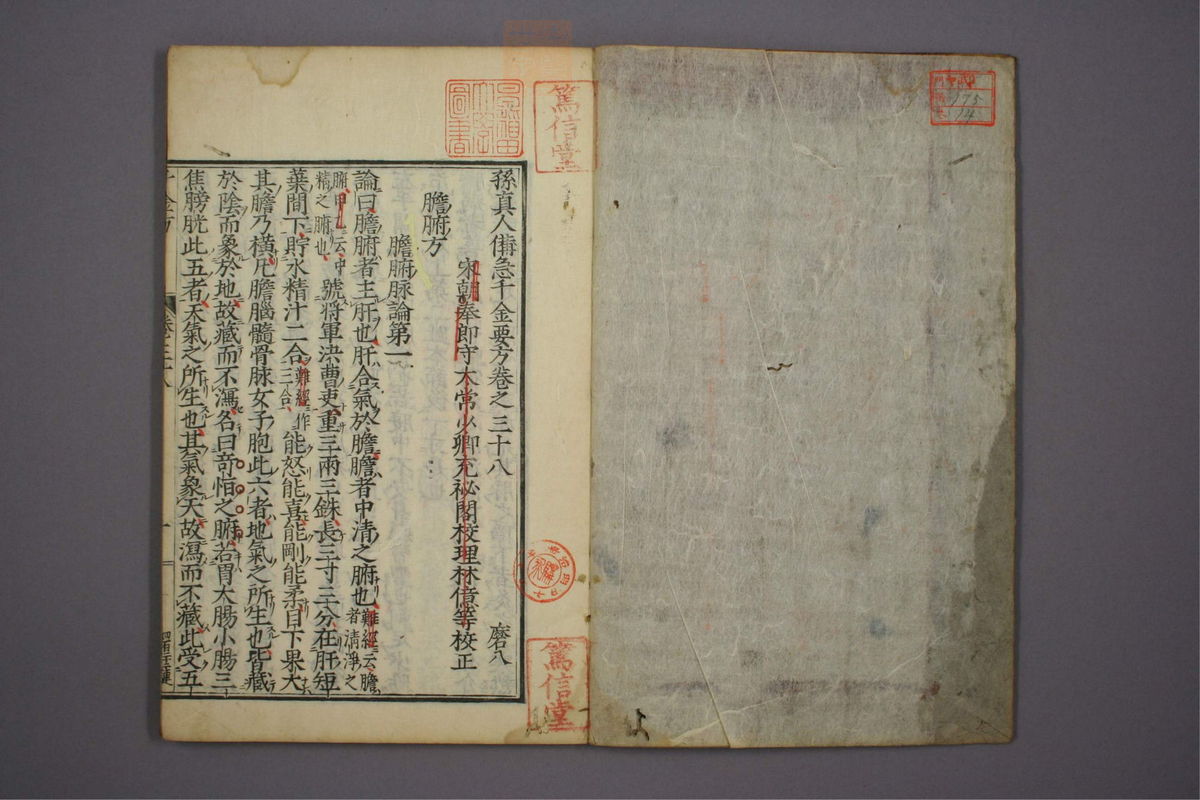 孫真人備急千金要方卷之三十八 磨八
宋朝奉郎守太常少卿充祕閣校理林億等校正
膽腑方
膽腑脉論第一
論曰膽腑者主肝也肝合氣於膽膽者中清之腑也難經云膽者清淨之
腑甲乙云中精之腑也號將軍決曹吏重三兩三銖長三寸三分在肝短
葉間下貯水精汁二合難經作三合能怒能喜能剛能柔目下果大
其膽乃橫凡膽腦髓骨脉女子胞此六者地氣之所生也皆藏
於陰而象於地故藏而不瀉名曰奇恒之腑若胃大腸小腸三
焦膀胱此五者天氣之所生也其氣象天故瀉而不藏此受五
早稲田大學圖書
篤信堂
篤信堂
175
14